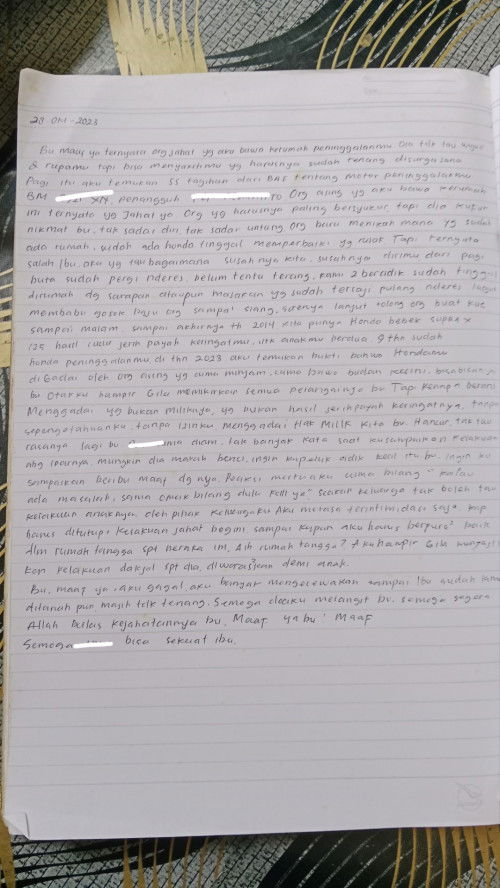 28-04-2023
Bu maaf ya ternyata org jahat yg aku bawa kerumah peninggalanmu. Dia tdk tau wajah
& rupamu tapi bisa menyakitimu yg harusnya sudah tenang disurga sana.
Pagi itu aku temukan SS tagihan dari BAF tentang motor peninggalanmu
BM XN, penangguh Org asing yg aku bawa kerumah
ini ternyata yg Jahat ya. Org yg harusnya paling bersyukur tapi dia kufur
nikmat bu, tak sadar diri, tak sadar untung. Org baru menikah mana yg sudah
ada rumah, sudah ada honda tinggal memperbaiki yg rusak. Tapi ternyata
salah Ibu. aku yg tau bagaimana susahnya kita, susahnya dirimu dari pagi
buta sudah pergi nderes, belum tentu terang, kami 2 beradik sudah tinggal
dirumah dg sarapan ataupun masakan yg sudah tersaji pulang nderes lanjut
membabu gosok baju org sampai siang, sorenya lanjut tolong org buat kue
sampai malam. sampai akhirnya th 2014 kita punya Honda bebek supra x
125 hasil jerih payah keringatmu, utk anakmu berdua. 9 thn sudah
honda peninggalanmu, di thn 2023 aku temukan bukti bahwa Hondamu
digadai oleh org asing yg cuma minjam, cuma bawa badan kesini. bisabisanya
bu Otakku hampir Gila memikirkan semua perangainya bu. Tapi kenapa berani
Menggadai yg bukan miliknya, yg bukan hasil jerihpayah keringatnya, tanpa
sepengetahuanku, tanpa izinku menggadai Hak Milik kita bu. Hancur, tak tau
rasanya lagi bu. diam, tak banyak kata saat kusampaikan kelakuan
abg iparnya, mungkin dia marah benci. ingin kupeluk adik kecil itu bu, ingin ku
sampaikan beribu maaf dg nya. Reaksi mertuaku cuma bilang " kalau
ada masalah, sama omak bilang dulu keluarga tak boleh tau
kelakuan anaknya. oleh pihak keluargaku Aku merasa terintimidasi saja,
harus ditutupi kelakuan jahat begini sampai kapan aku harus berpura² baik
dlm rumah tangga spt neraka ini, Aih rumah tangga? Aku hampir Gila
kan kelakuan dakjal spt dia, diwaraskan demi anak.
Bu, maaf ya, aku gagal, aku banyak mengecewakan sampai Ibu sudah lama
ditanah pun masih tdk tenang. Semoga doaku melangit bu, semoga segera
Allah balas kejahatannya bu. Maaf ya bu, maaf
Semoga bisa sekuat ibu.